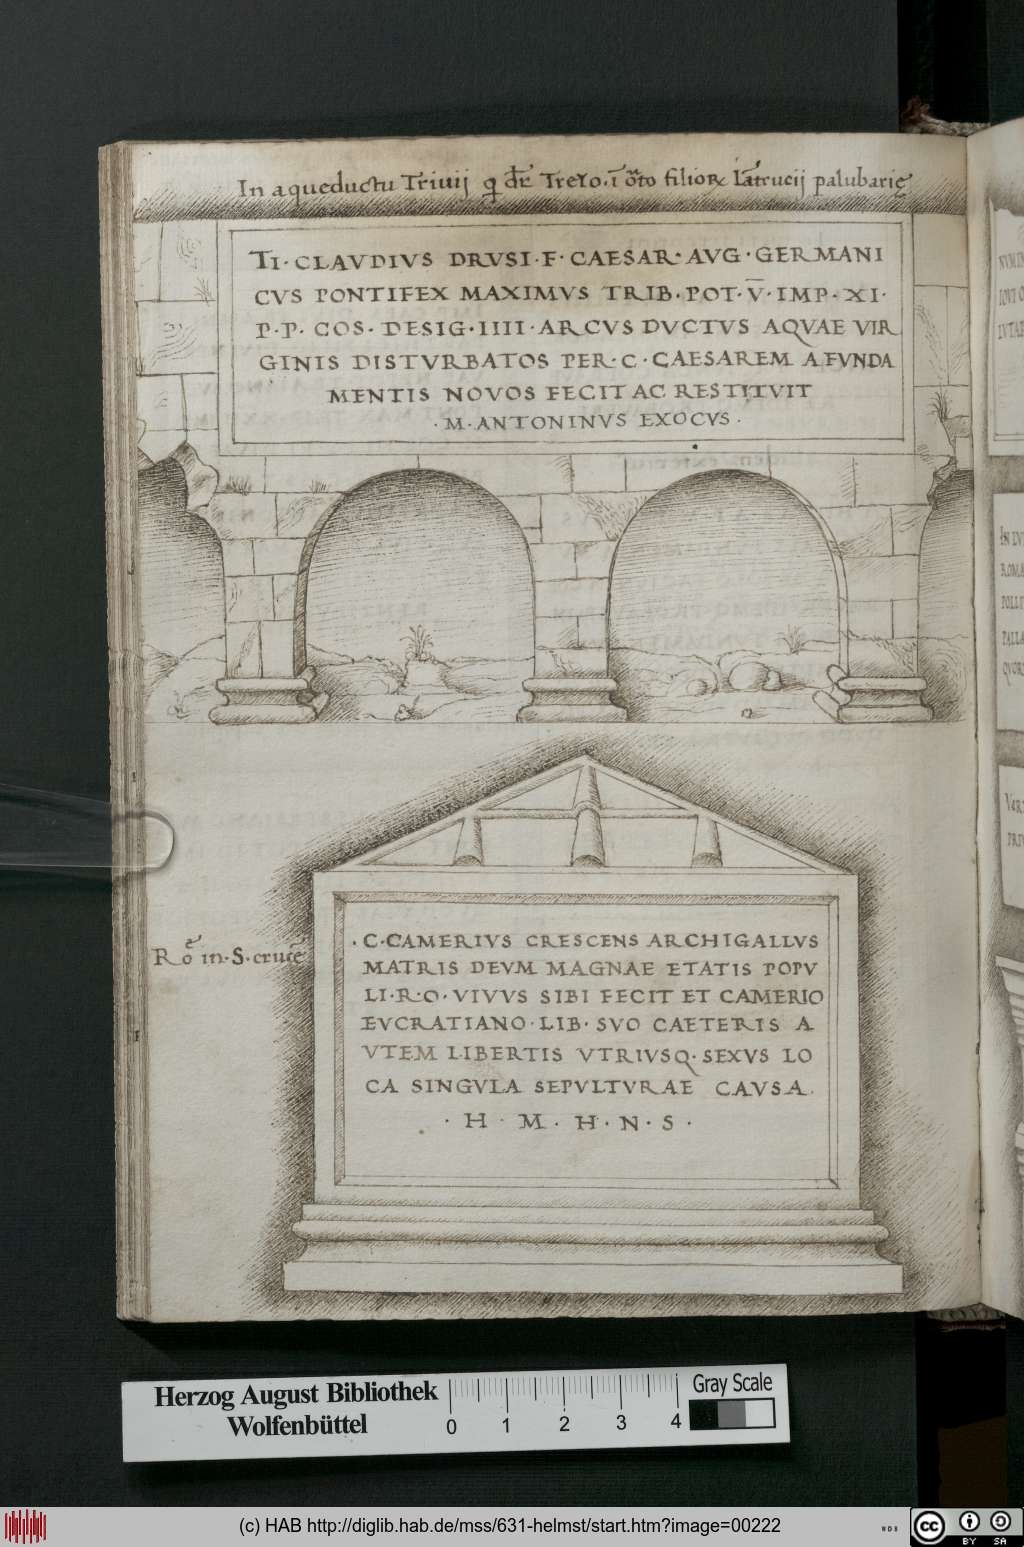 In aqueductu Triuij q̄ dr̄ Treio. ī orto filioꝝ Latrucij palubarię
TI·CLAVDIVS DRVSI·F·CAESAR·AVG·GERMANI
CVS PONTIFEX MAXIMVS TRIB·POT·V̄·IMP·XI·
P·P·COS·DESIG·IIII·ARCVS DVCTVS AQVAE VIR
GINIS DISTVRBATOS PER·C·CAESAREM A FVNDA
MENTIS NOVOS FECIT AC RESTITVIT
·M·ANTONINVS EXOCVS·
Ro in·S·cruce
·C·CAMERIVS CRESCENS ARCHIGALLVS
MATRIS DEVM MAGNAE ETATIS POPV
LI·R·O·VIVVS SIBI FECIT ET CAMERIO
EVCRATIANO·LIB·SVO CAETERIS A
VTEM LIBERTIS VTRIVSQ·SEXVS LO
CA SINGVLA SEPVLTVRAE CAVSA·
·H·M·H·N·S·
Herzog August Bibliothek
Wolfenbüttel
0 1 2 3 4
Gray Scale
(c) HAB http://diglib.hab.de/mss/631-helmst/start.htm?image=00222
WDB
cc
BY SA